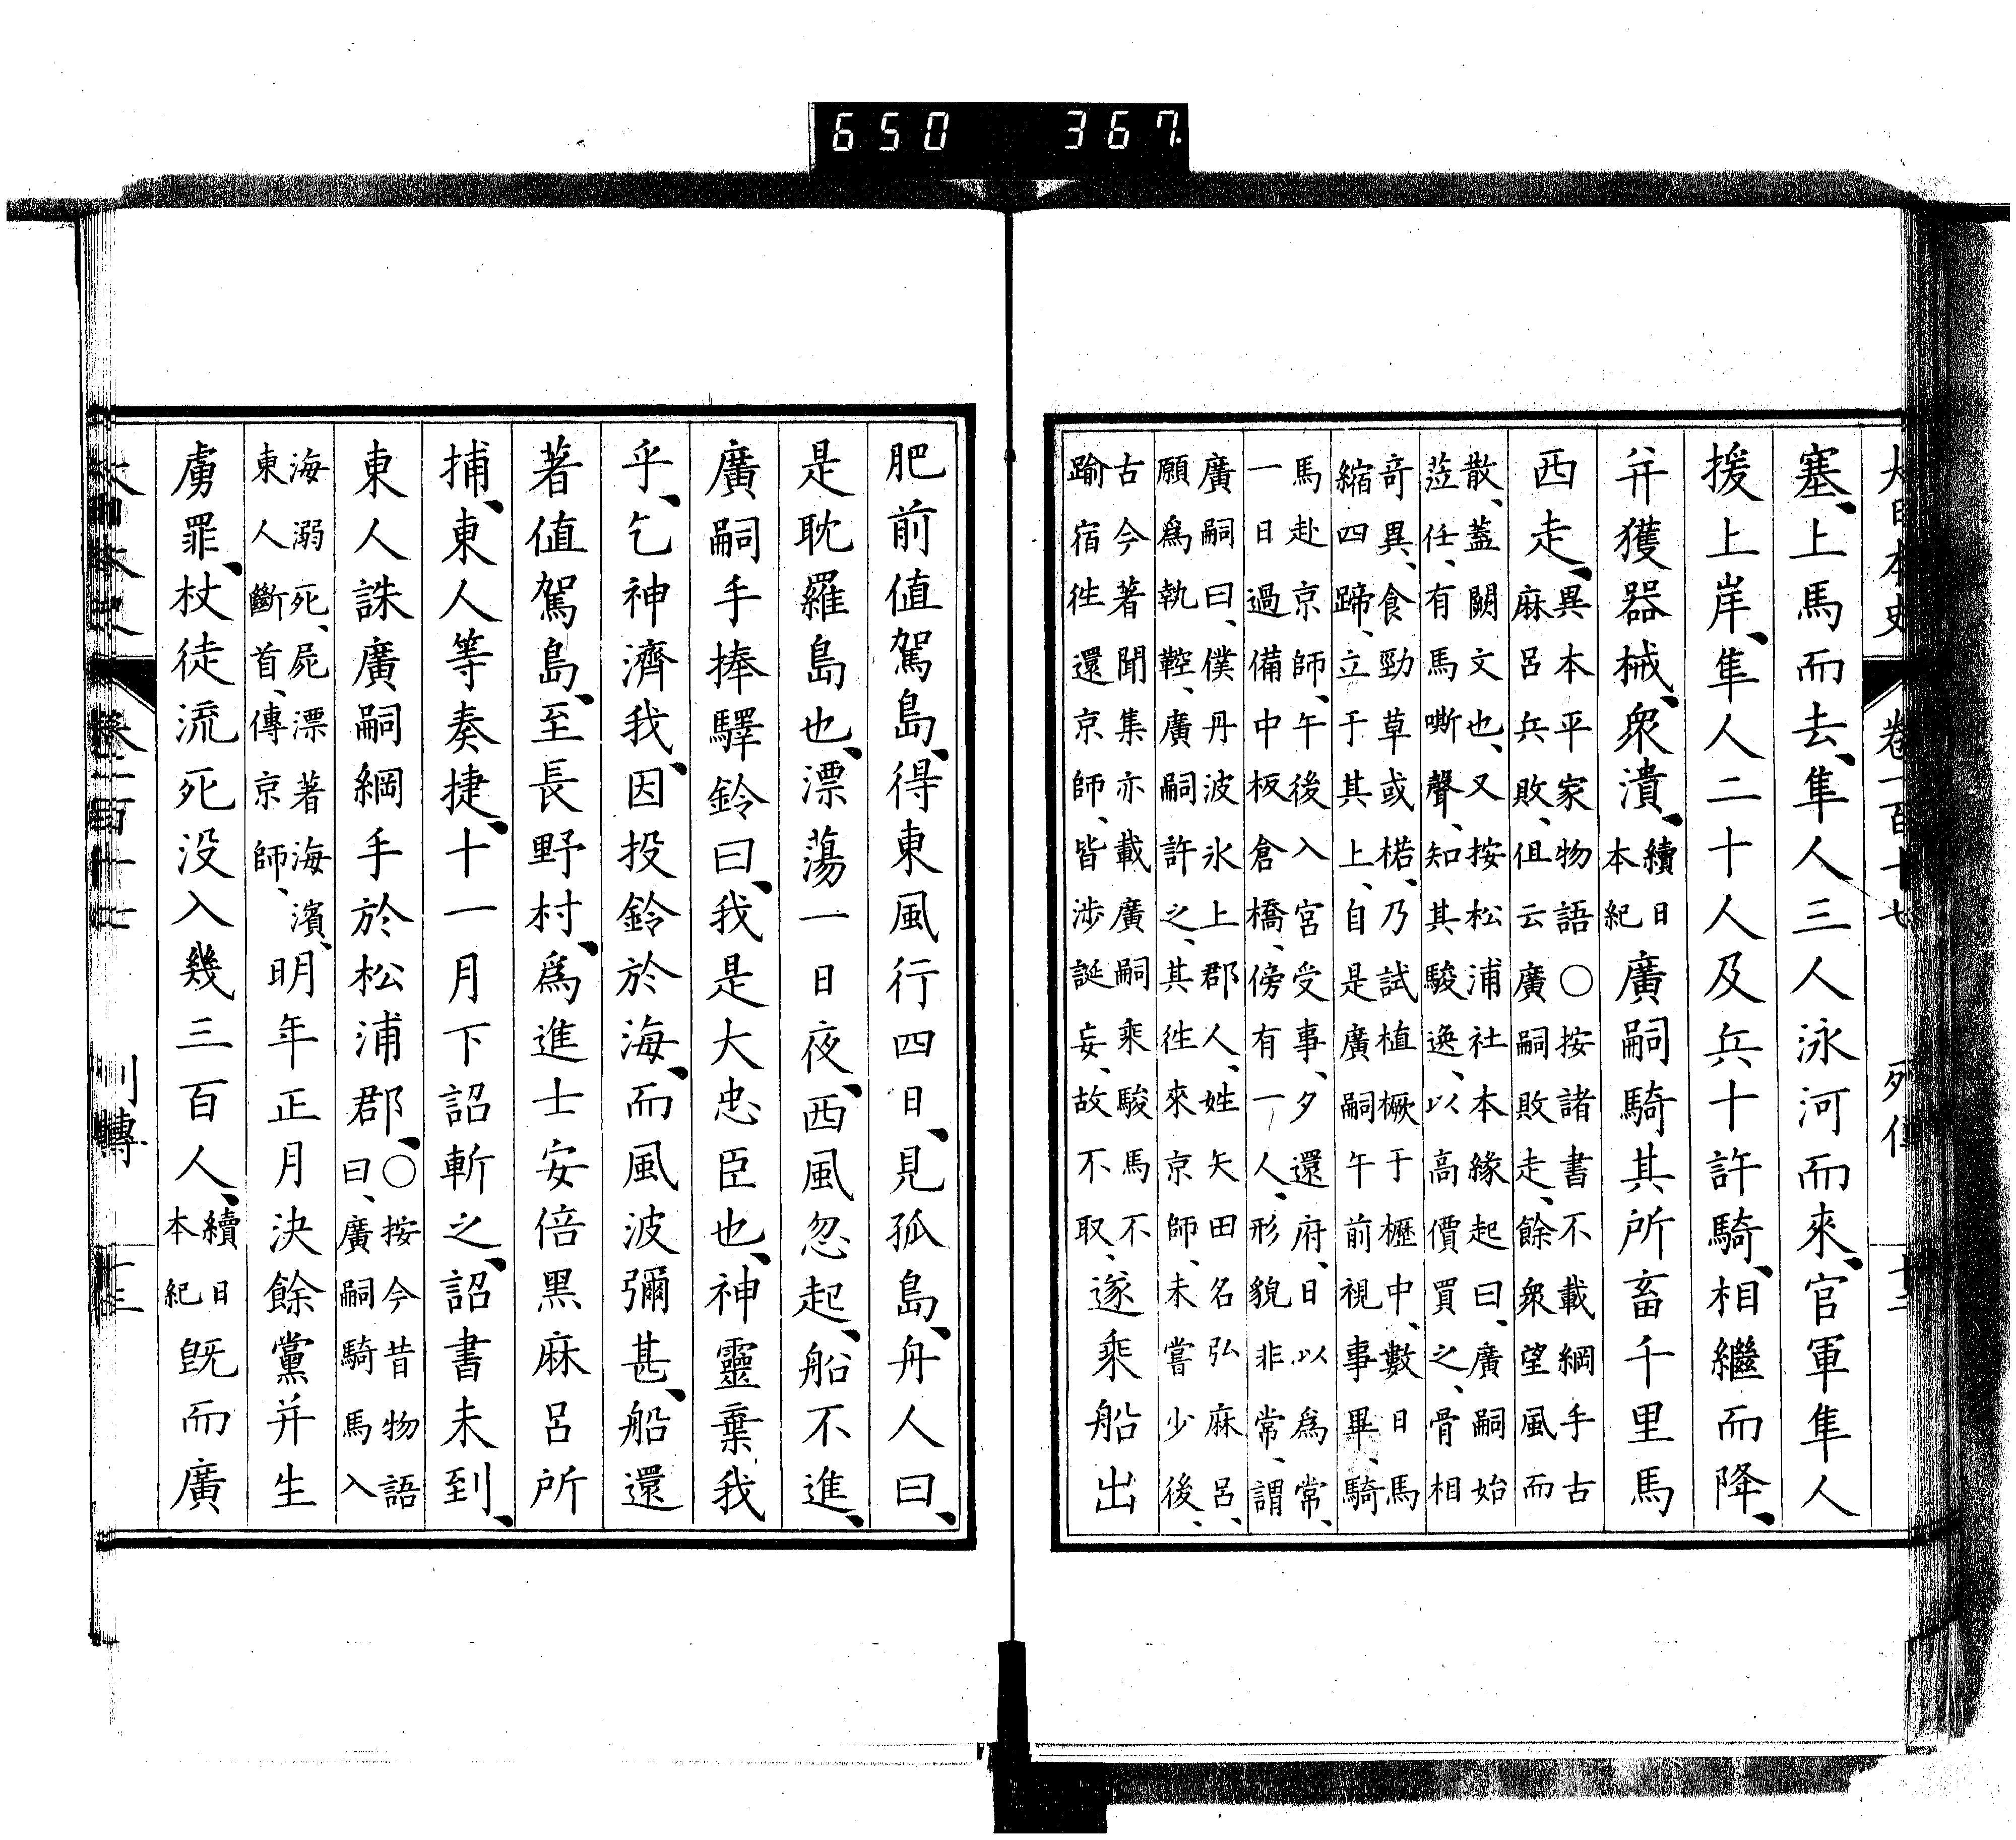 大日本史 卷一百十七 列傳 十二
塞、上馬而去、隼人三人泳河而來、官軍隼人
援上岸、隼人二十人及兵十許騎、相繼而降、
并獲器械、衆潰、續日本紀廣嗣騎其所畜千里馬
西走、異本平家物語〇按諸書不載綱手古
麻呂兵敗、但云廣嗣敗走、餘衆望風而
散、蓋闕文也、又按松浦社本緣起曰、廣嗣始
蒞任、有馬嘶聲、知其駿逸、以高價買之、骨相
奇異、食勁草或楛、乃試植橛于櫪中、數日馬
縮四蹄、立于其上、自是廣嗣午前視事畢、騎
馬赴京師、午後入宮受事、夕還府、日以爲常、
一日過備中板倉橋、傍有一人、形貌非常、謂
廣嗣曰、僕丹波氷上郡人、姓矢田名弘麻呂、
願爲執鞚、廣嗣許之、其徃來京師、未嘗少後、
古今著聞集亦載廣嗣乘駿馬不
踰宿徃還京師、皆涉誕妄、故不取、遂乘船出
肥前値駕島、得東風行四日、見孤島、舟人曰、
是耽羅島也、漂蕩一日夜、西風忽起、船不進、
廣嗣手捧驛鈴曰、我是大忠臣也、神靈棄我
乎、乞神濟我、因投鈴於海、而風波彌甚、船還
著値駕島、至長野村、爲進士安倍黑麻呂所
捕、東人等奏捷、十一月下詔斬之、詔書未到、
東人誅廣嗣綱手於松浦郡、〇按今昔物語
曰、廣嗣騎馬入
海溺死、屍漂著海濱、
東人斷首、傳京師、明年正月決餘黨并生
虜罪、杖徒流死沒入幾三百人、續日本紀既而廣
大日本史 卷一百十七 列傳 十三